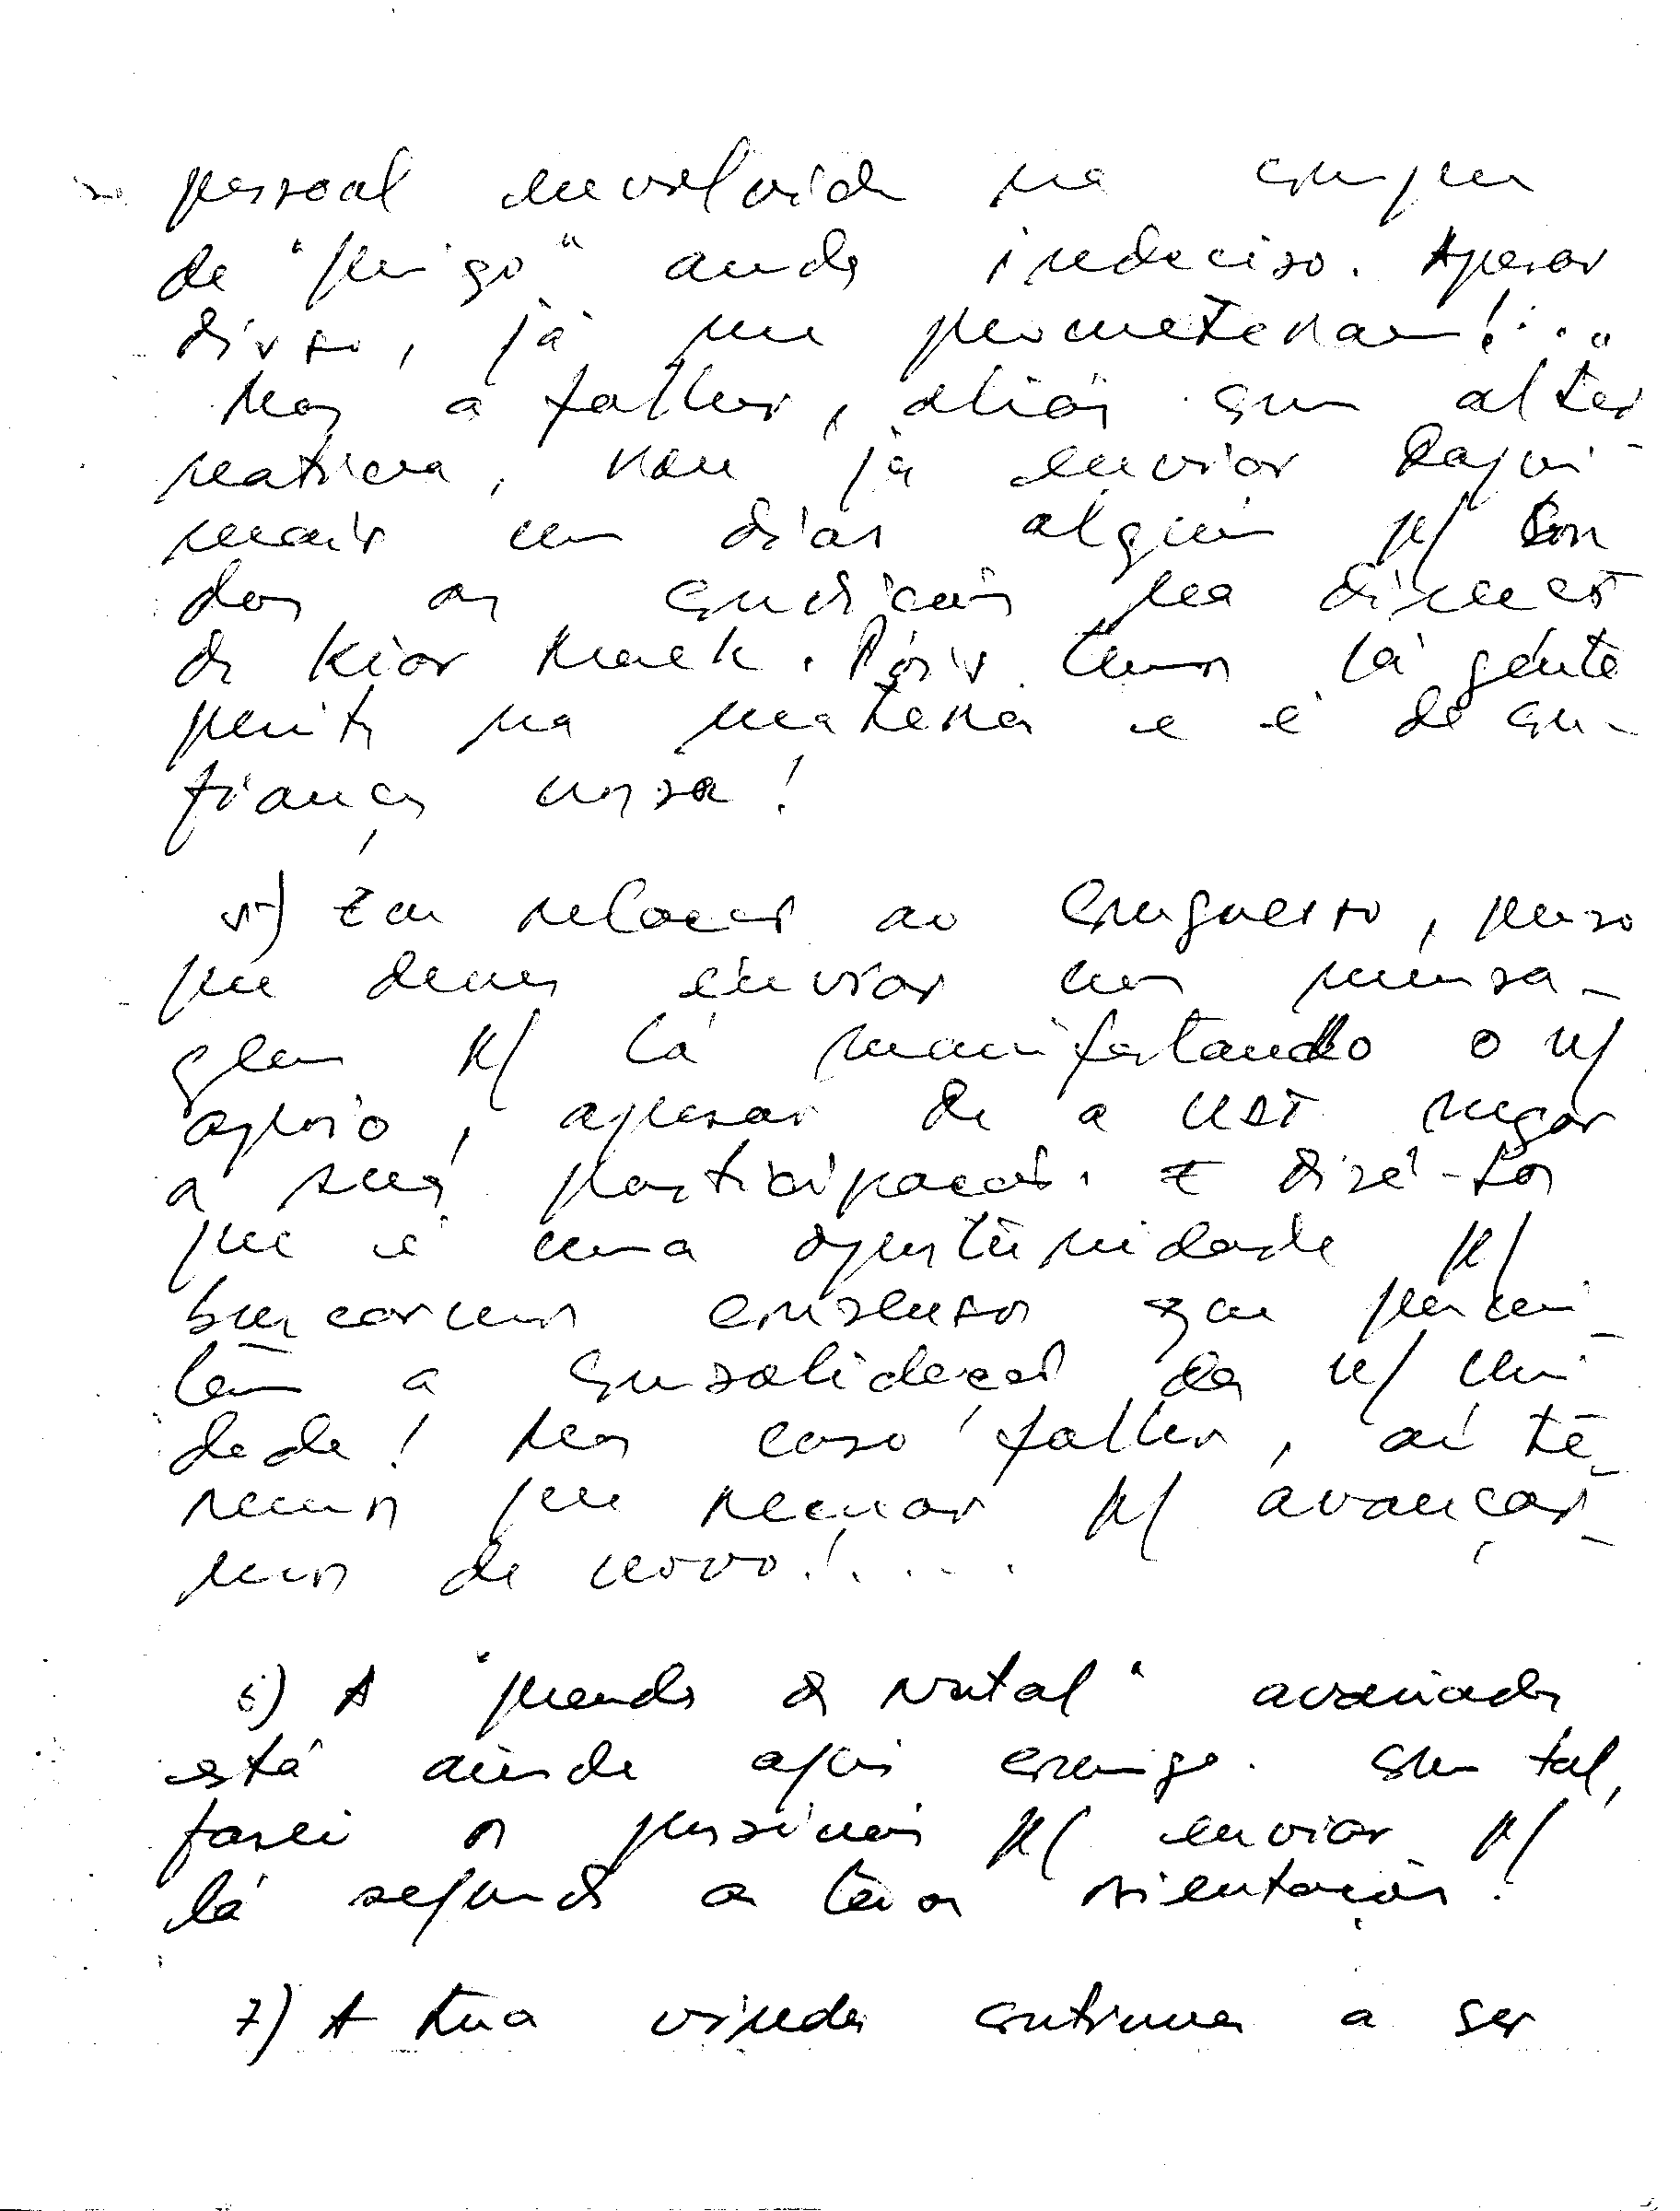 pessoal envolvido na compra
de "perigo" anda indeciso. Apesar
disso, já me prometeram!...
Mas a falhar, aliás com alter
nativa, vou já enviar daqui
mais uns dias alguém p/ son
dar as condições na direcção
de Kior Muek. Pois temos lá gente
perita na matéria e é de con-
fiança nossa!
5) Em relação ao Congresso, penso
que deves enviar uma mensa-
gem p/ lá manifestando o n/
apoio, apesar de a UDT negar
a sua participação. E dizê-los
que é uma oportunidade p/
buscarmos consensos que permi-
tam a consolidação da n/ uni
dade! Mas caso falhar, aí te-
remos que recuar p/ avançar-
mos de novo!....
6) A "prenda de Natal" avariada
está ainda aqui comigo. Com tal,
farei os possíveis p/ enviar p/
lá segundo as tuas orientações.
7) A tua vinda continua a ser